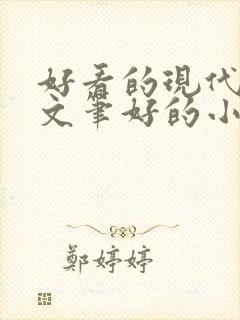 好看的现代
文笔好的小
鄭婷婷